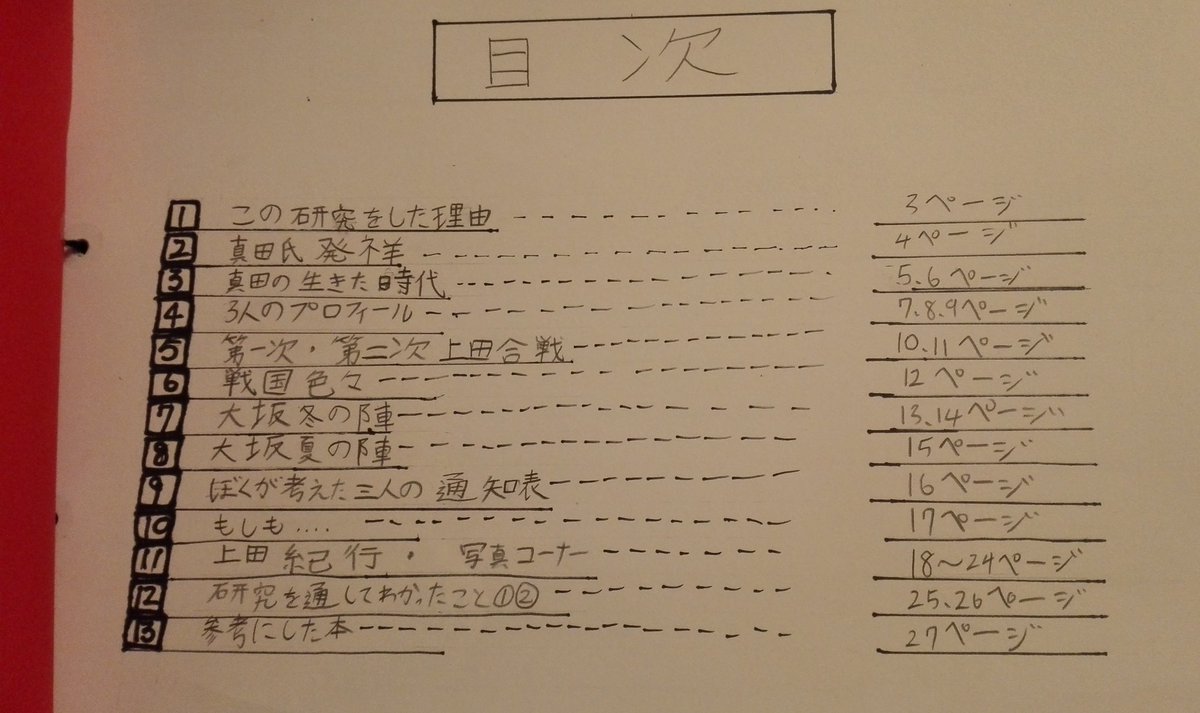 目 次
1 この研究をした理由 3ページ
2 真田氏発祥 4ページ
3 真田の生きた時代 5.6ページ
4 3人のプロフィール 7.8.9ページ
5 第一次・第二次上田合戦 10.11ページ
6 戦国色々 12ページ
7 大坂冬の陣 13.14ページ
8 大坂夏の陣 15ページ
9 ぼくが考えた三人の通知表 16ページ
10 もしも.... 17ページ
11 上田紀行・ 写真コーナー 18〜24ページ
12 研究を通してわかったこと①② 25.26ページ
13 参考にした本 27ページ